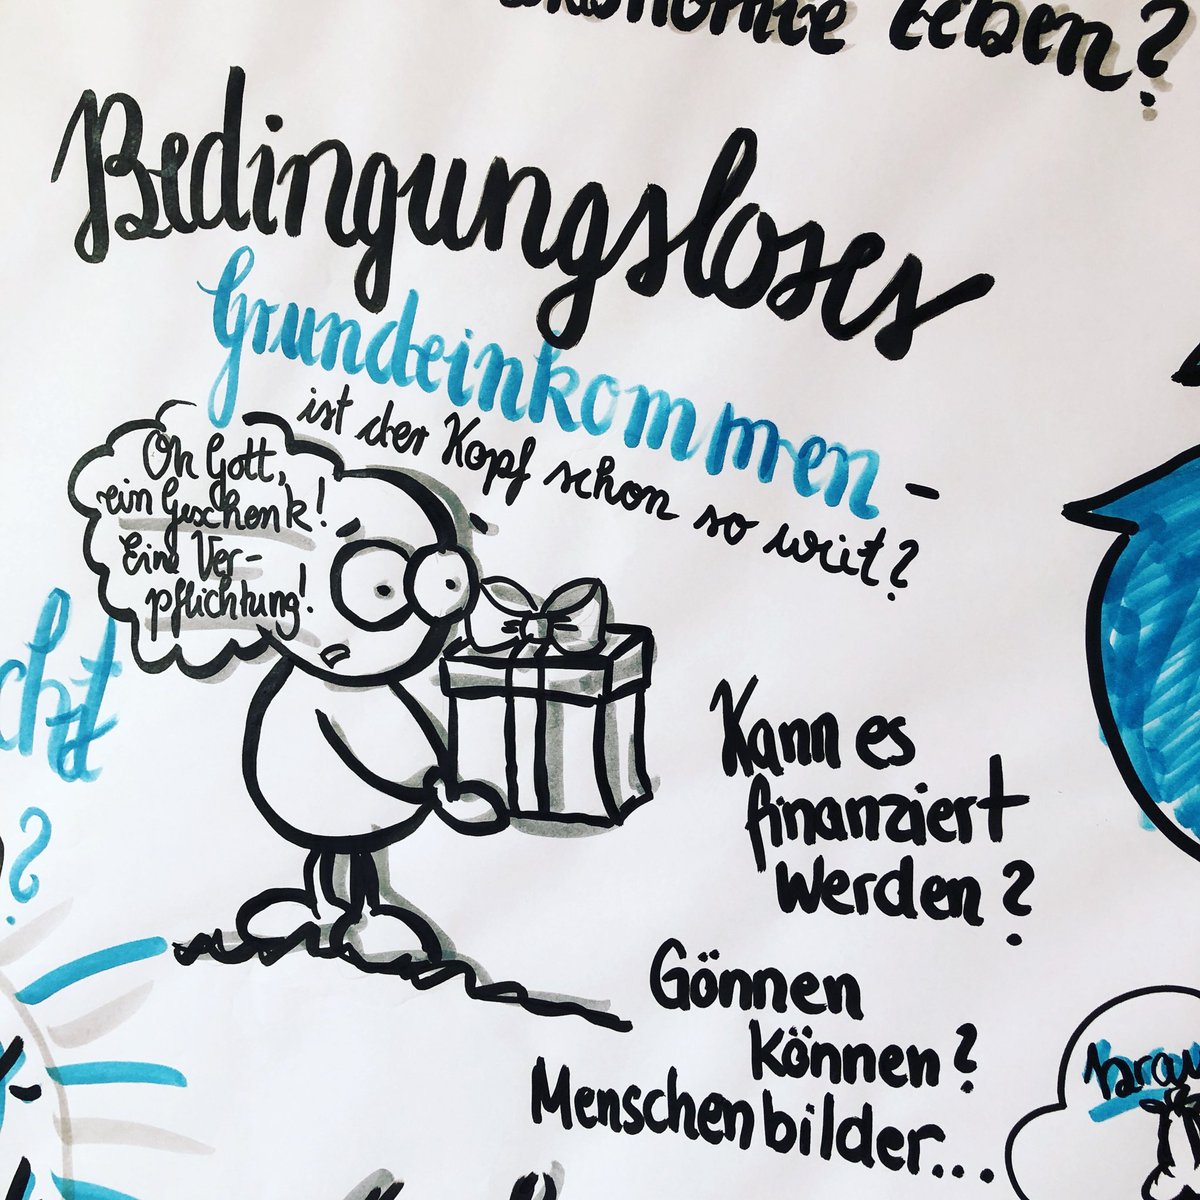 Leben?
Bedingungsloses
Grundeinkommen -
ist der Kopf schon so weit?
Oh Gott,
ein Geschenk!
Eine Ver-
pflichtung!
Kann es
finanziert
werden?
Gönnen
können?
Menschenbilder...